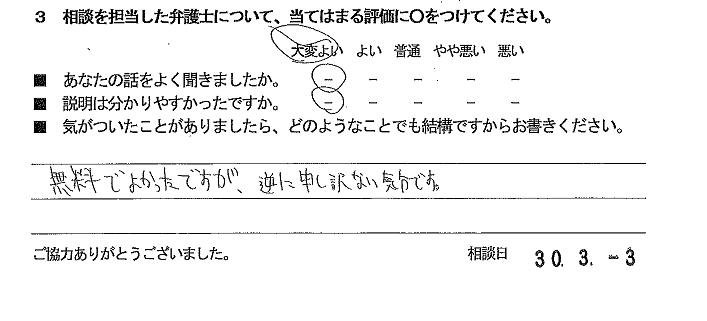 3 相談を担当した弁護士について、当てはまる評価に○をつけてください。
大変よい よい 普通 やや悪い 悪い
■ あなたの話をよく聞きましたか。 － － － － －
■ 説明は分かりやすかったですか。 － － － － －
■ 気がついたことがありましたら、どのようなことでも結構ですからお書きください。
無料でよかったですが、逆に申し訳ない気分です。
ご協力ありがとうございました。 相談日 30. 3. -3